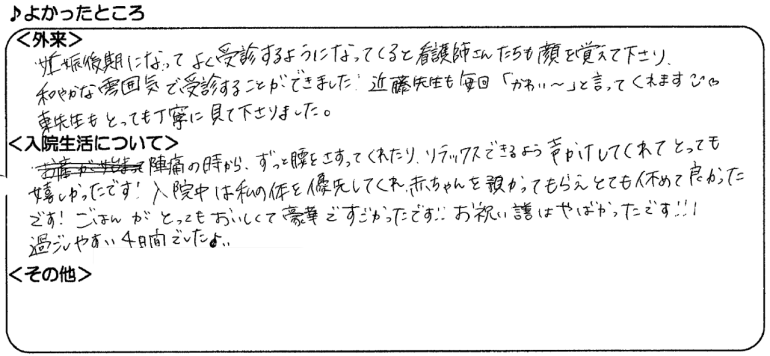 ♪よかったところ
<外来>
妊娠後期になって よく受診するようになってくると看護師さんたちも顔を覚えて下さり、
和やかな雰囲気で受診することができました! 近藤先生も毎回「かわい〜」と言ってくれます
東先生もとっても丁寧に見て下さりました。
<入院生活について>
陣痛の時から、ずっと腰をさすってくれたり、リラックスできるよう声かけしてくれてとっても
嬉しかったです! 入院中は私の体を優先してくれ、赤ちゃんを預かってもらえとても休めて良かった
です! ごはんがとってもおいしくて豪華ですごかったです!! お祝い膳はやばかったです!!!
過ごしやすい4日間でした♪
<その他>